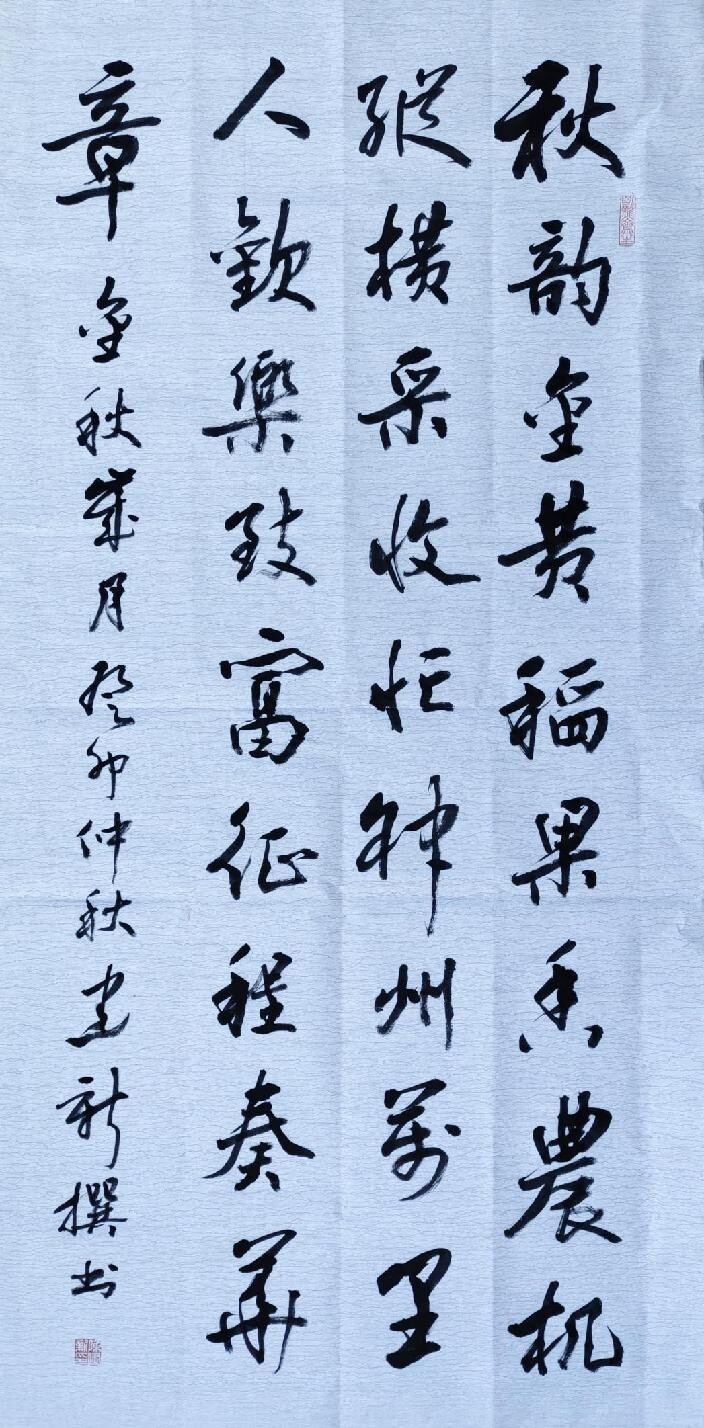 秋韵金黄稻果香農机
纵横采收忙神州萬里
人歡樂致富征程奏華
章 金秋歲月癸卯仲秋建新撰书